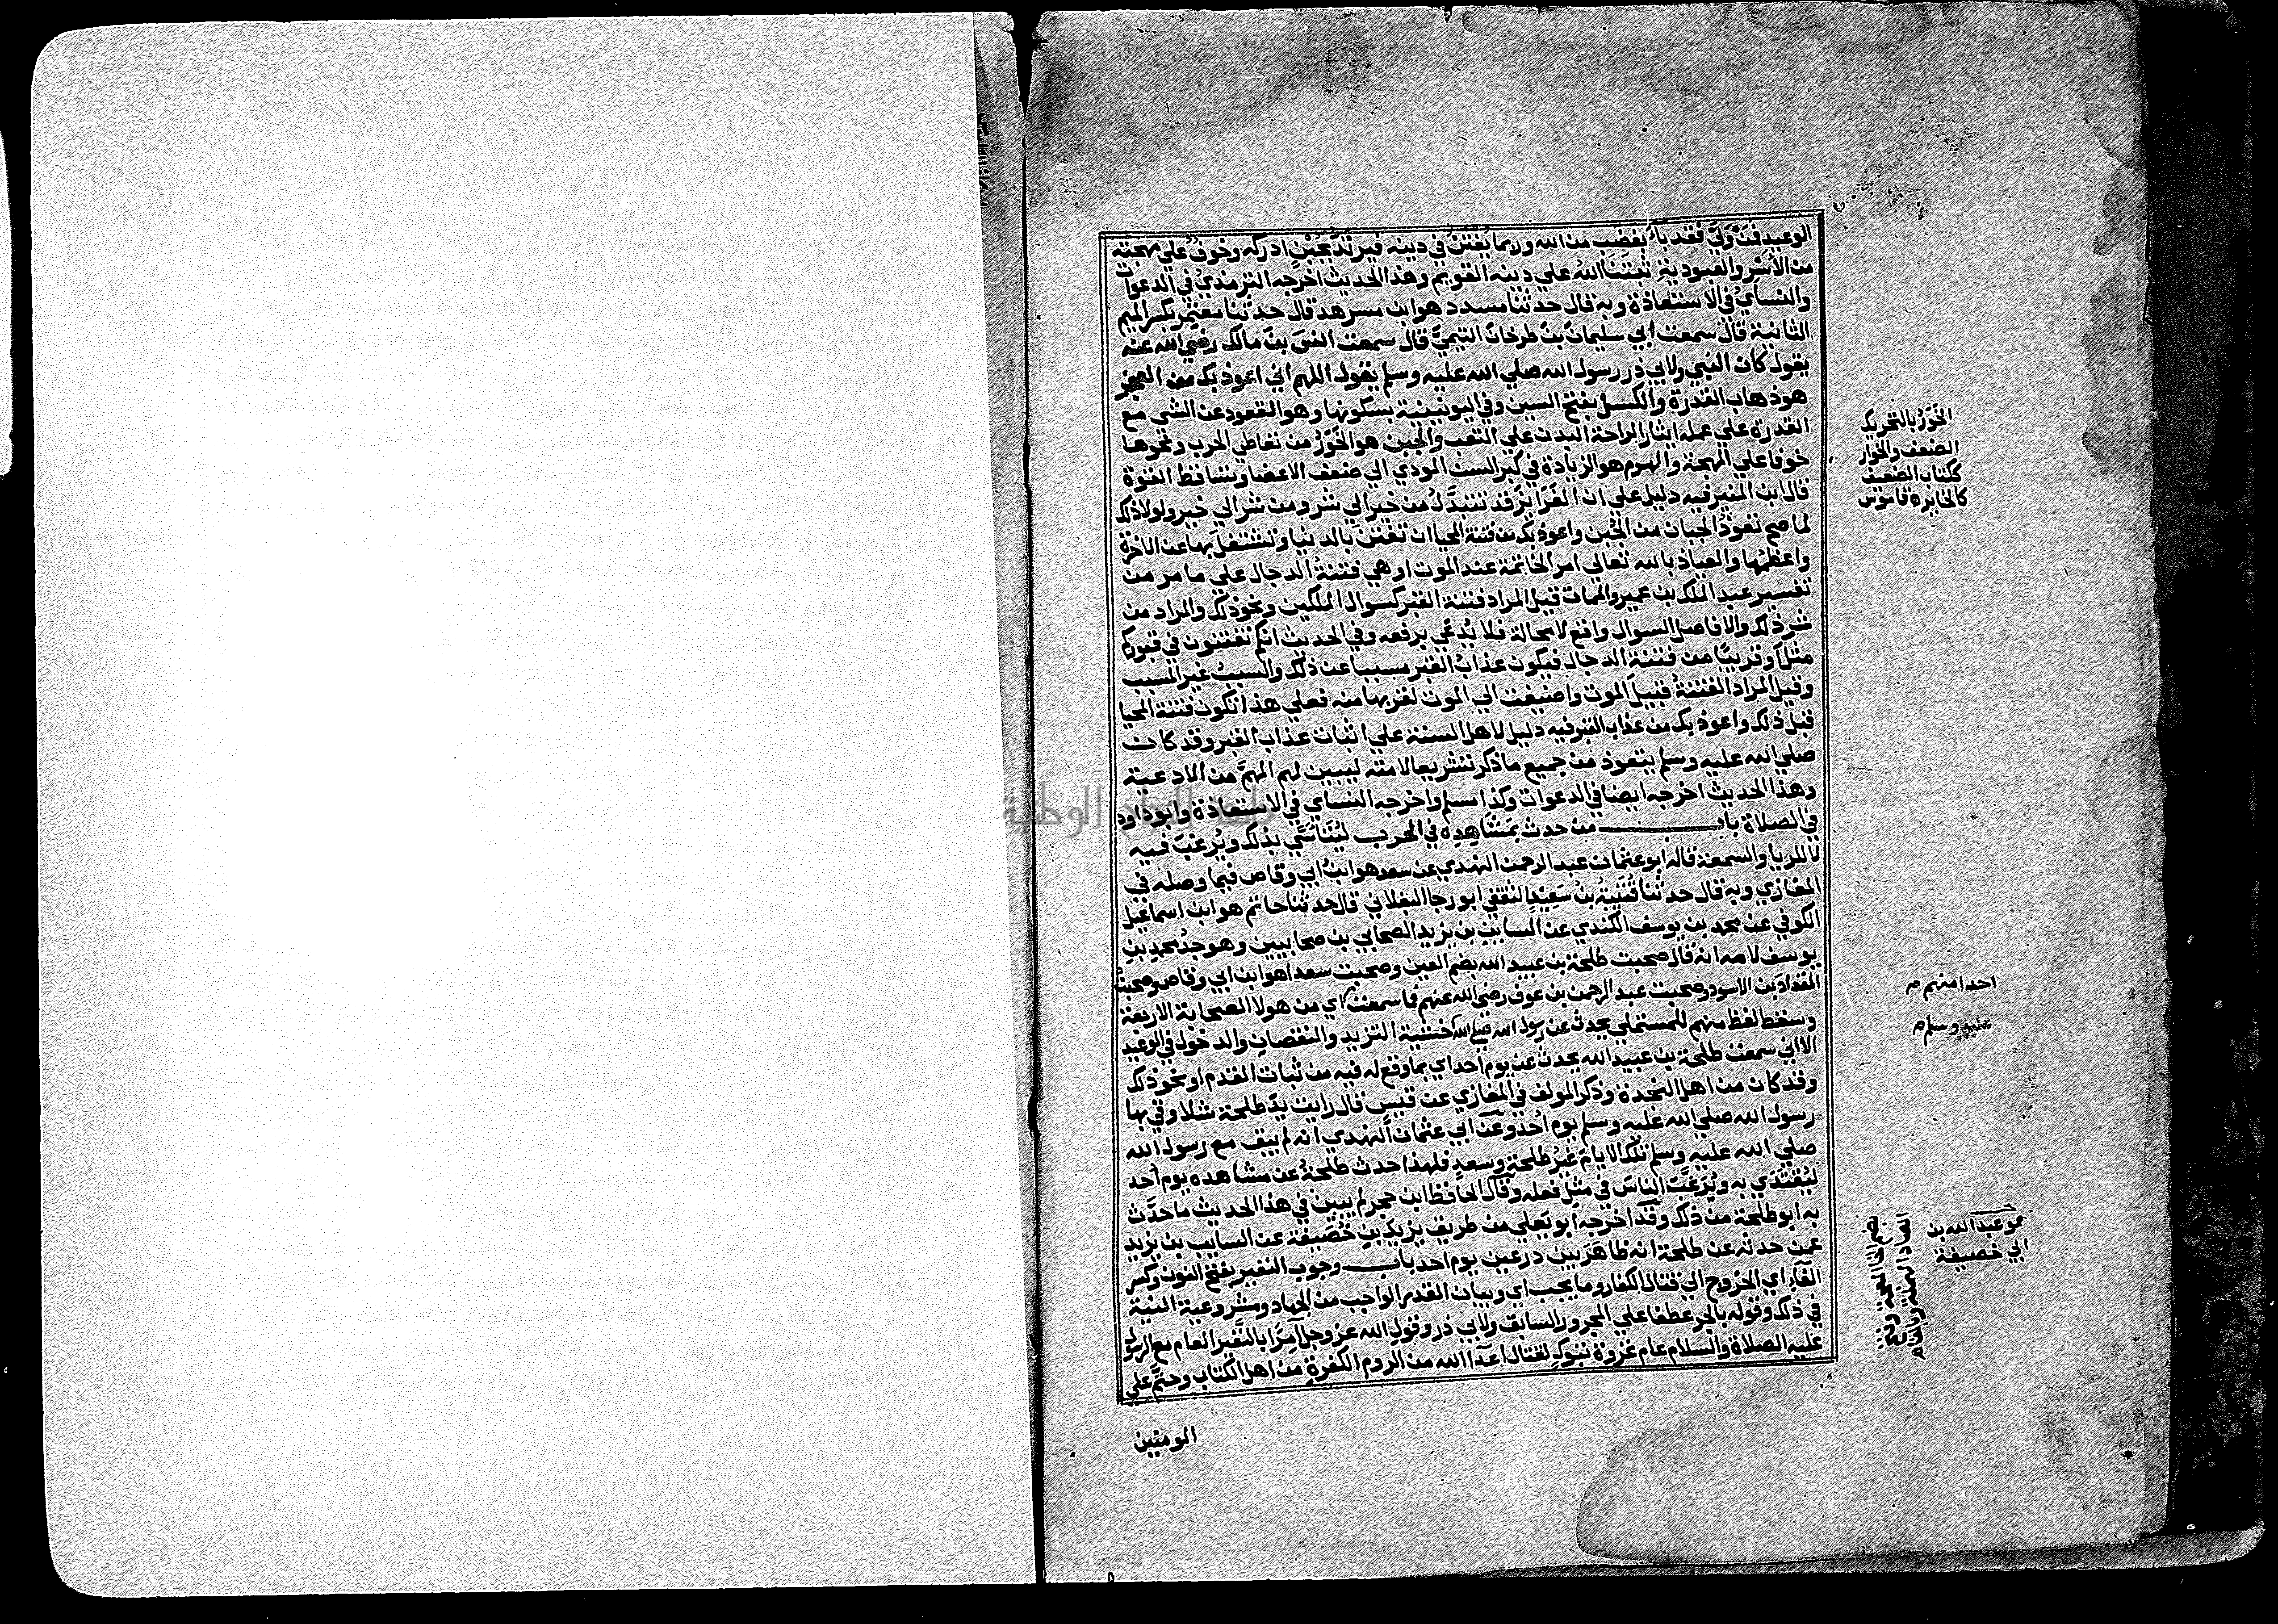 الوعيد فمن ولي فقد باء بغضب من الله وربما يفتتن في دينه فيرتد بجبن ادركه وخوف علي مهجته
من الأسر والعبودية ثبتنا الله علي دينه القويم وهذا الحديث اخرجه الترمذي في الدعوات
والنسايُ في الاستعاذة وبه قال حدثنا مسدد هو ابن مسرهد قال حدثنا معتمر بكسر الميم
الثانية قال سمعت ابي سليمانَ بنَ طرخان التيميَّ قال سمعت انسَ بنَ مالك رضي الله عنه
يقول كان النبي ولابي ذر رسول الله صلي الله عليه وسلم يقول اللهم اني اعوذ بك من العجز
هو ذهاب القدرة والكسل بفتح السين وفي اليونينية بسكونها وهو القعود عن الشي مع
القدرة علي عمله ايثار الراحة البدن علي التعب والجبن هو الخَوَرُ من تعاطي الحرب ونحوها
خوفا علي المهجة والهرم هو الزيادة في كبر السن المودي الي ضعف الاعضا وتساقط القوة
قال ابن المنير فيه دليل علي ان الغَرَايز قد تتبدَّل من خير الي شر ومن شر الي خير ولولا ذلك
لما صح تعوذُ الجبان من الجبن واعوذ بك من فتنة المحيا ان تفتتن بالدنيا وتشتغل بها عن الاخرة
واعظمها والعياذ بالله تعالي امر الخاتمة عند الموت او هي فتنةُ الدجال علي ما مر من
تفسير عبد الملك بن عمير والممات قيل المراد فتنة القبر كسوال الملكين ونحو ذلك والمراد من
شر ذلك والا فاصل السوال واقع لا محالة فلا يُدعي برفعه وفي الحديث انكم تفتنون في قبوركم
مثل او قريبا من فتنة الدجال فيكون عذابُ القبر مسببا عن ذلك والسببُ غير المسبب
وقيل المراد الفتنةُ قبيل الموت واضيفت الي الموت لقربها منه فعلي هذا تكون فتنة المحيا
قبل ذلك واعوذ بك من عذاب القبر فيه دليل لاهل السنة علي اثبات عذاب القبر وقد كان
صلي الله عليه وسلم يتعوذ من جميع ما ذكر تشريعا لامته ليبين لهم المهمَّ من الادعية
وهذا الحديث اخرجه ايضا في الدعوات وكذا مسلم واخرجه النساي في الاستعاذة وابو داود
في الصلاة باب من حدث بمَشَاهِده في الحرب ليُتَأَسَّي بذلك ويُرغبَ فيه
لا للريا والسمعة قاله ابو عثمان عبد الرحمن النهدي عن سعد هو ابن ابي وقاص فيما وصله في
المغازي وبه قال حدثنا قُتَيبَةُ بنُ سَعِيْدٍ الثقفي ابو رجا البغلاني قال حدثنا حاتم هو ابن اسماعيل
الكوفي عن محمد بن يوسف الكندي عن السايب بن يزيد الصحابي بن صحابيين وهو جدُّ محمدِ بنِ
يوسف لامه انه قال صحبت طلحة بن عبيد الله بضم العين وصحبت سعدا هو ابن ابي وقاص وصحبت
المقدادَ بن الاسود وصحبت عبد الرحمن بن عوف رضي الله عنهم فما سمعت اي من هولا الصحابة الاربعة
وسقط لفظ منهم للمستملي يحدث عن رسول الله صلي الله خشية التزيد والنقصان والدخول في الوعيد
الا اني سمعت طلحة بن عبيد الله يحدث عن يوم احد اي بما وقع له فيه من ثبات القدم او نحو ذلك
وقد كان من اهل النجدة وذكر المولف في المغازي عن قيس قال رايت يدَ طلحة شلا وقي بها
رسول الله صلي الله عليه وسلم يوم اُحُد وعن ابي عثمان النهدي انه لم يبق مع رسول الله
صلي الله عليه وسلم تلك الايام غيرُ طلحة وسعدٍ فلهذا حدث طلحة عن مشاهده يوم احد
ليُقْتَدَي به ويُرَغبَ الناسَ في مثل فعله وقال الحافظ ابن حجر لم يبين في هذا الحديث ما حَدَّث
به ابو طلحة من ذلك وقد اخرجه ابو يَعلي من طريف يزيد بن خُصَيفة عن السايب بن يزيد
عمن حدثه عن طلحة انه ظاهَرَ بين درعين يوم احد باب وجوب النفير بفتح النون وكسر
الفاءِ اي الخروج الي قتال الكفار وما يجب اي وبيان القدر الواجب من الجهاد ومشروعية النية
في ذلك وقوله بالجر عطفا علي المجرور السابق ولابي ذر وقول الله عز وجل آمِرًا بالنَّفير العام مع الرسول
عليه الصلاة والسلام عام غزوة تبوك لقتال اعداء الله من الروم الكفرة من اهل الكتاب وحَتَّمَ علي
المومنين
الخَوَرُ بالتحريك
الضعف والخوار
ككتاب الضعيف
كالخاير ه قاموس
احدا منهم م
عليه وسلم م
عمو عبد الله بن
ابي خصيفة
بضم الخا المعجمة وفتح
الصاد المهملة وبالفاء